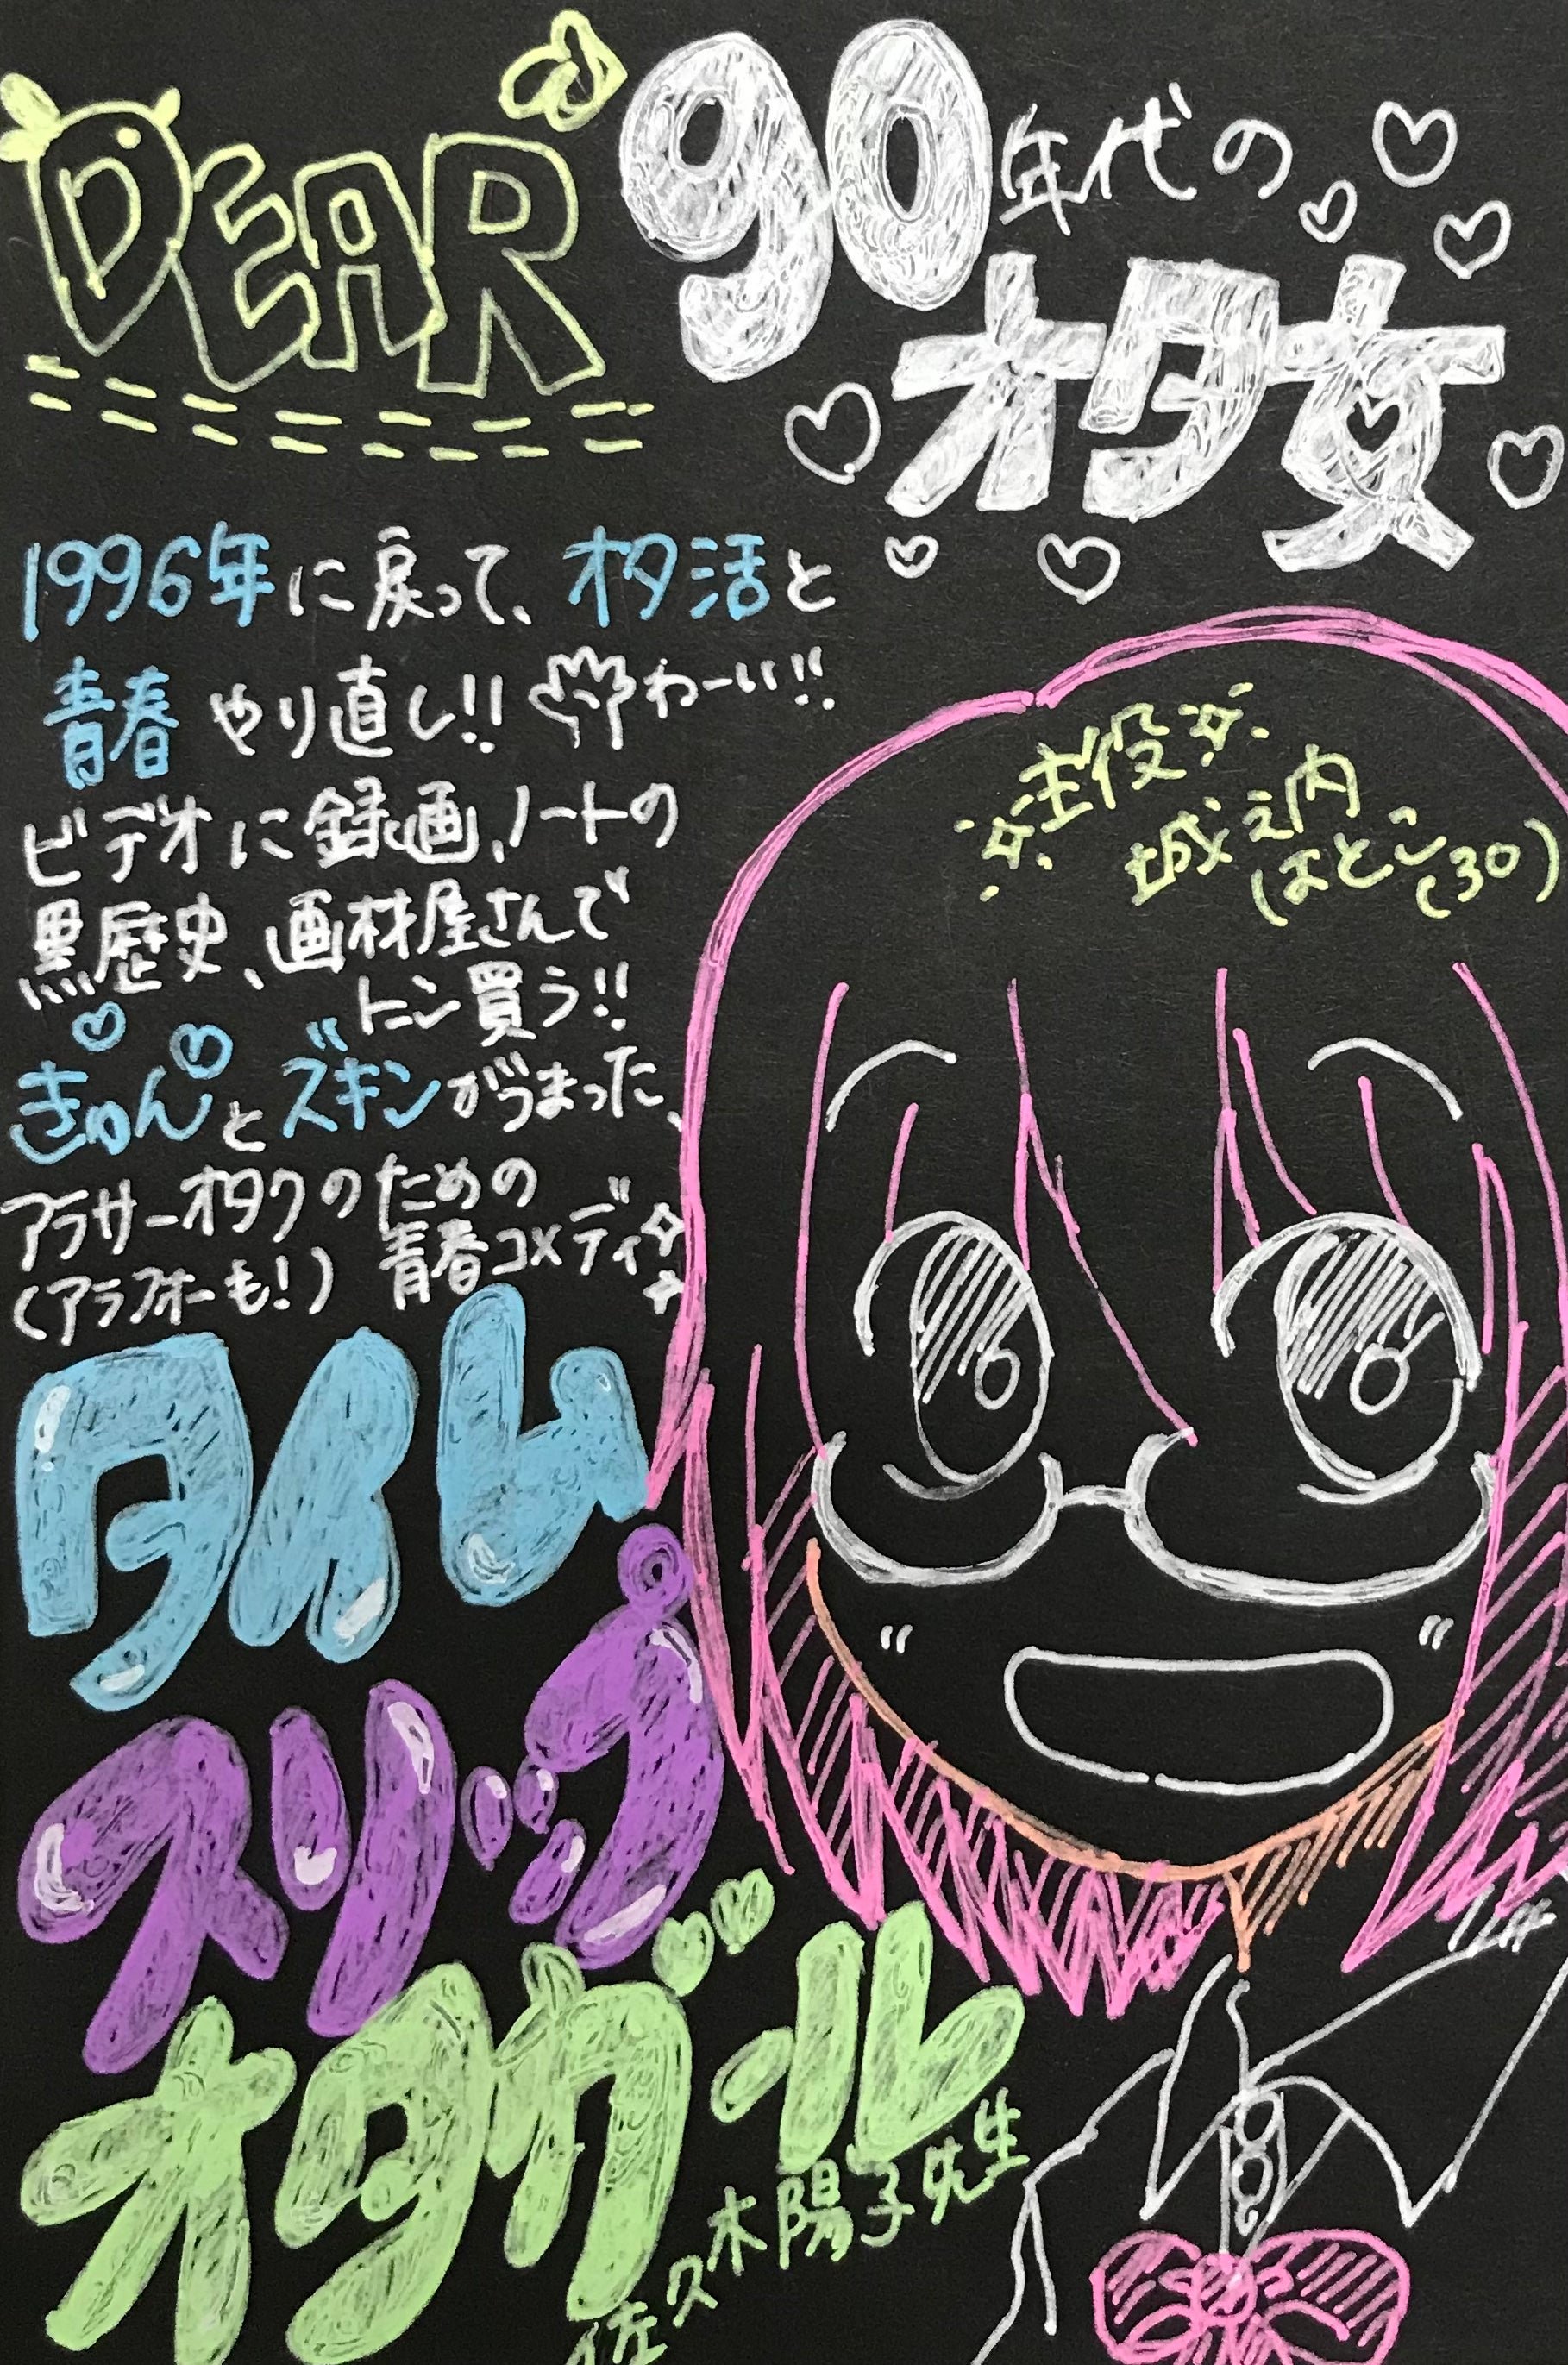 DEAR
90年代の
オタ女
1996年に戻って、オタ活と
青春やり直し!! わーい!!
ビデオに録画、ノートの
黒歴史、画材屋さんで
トーン買う!!
きゅんとズキンがつまった、
アラサーオタクのための
(アラフォーも!) 青春コメディ
主役
城之内
はとこ(30)
タイム
スリップ
オタガール
佐々木陽子先生